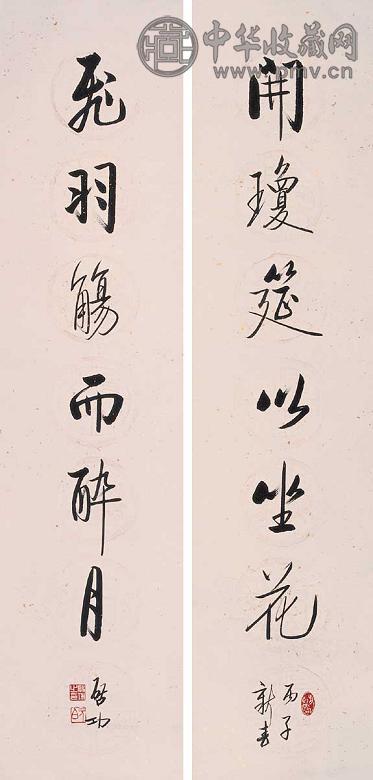 開瓊筵以坐花
丙子
新春
飛羽觴而醉月
啓功
中华收藏网
www.pmv.cn